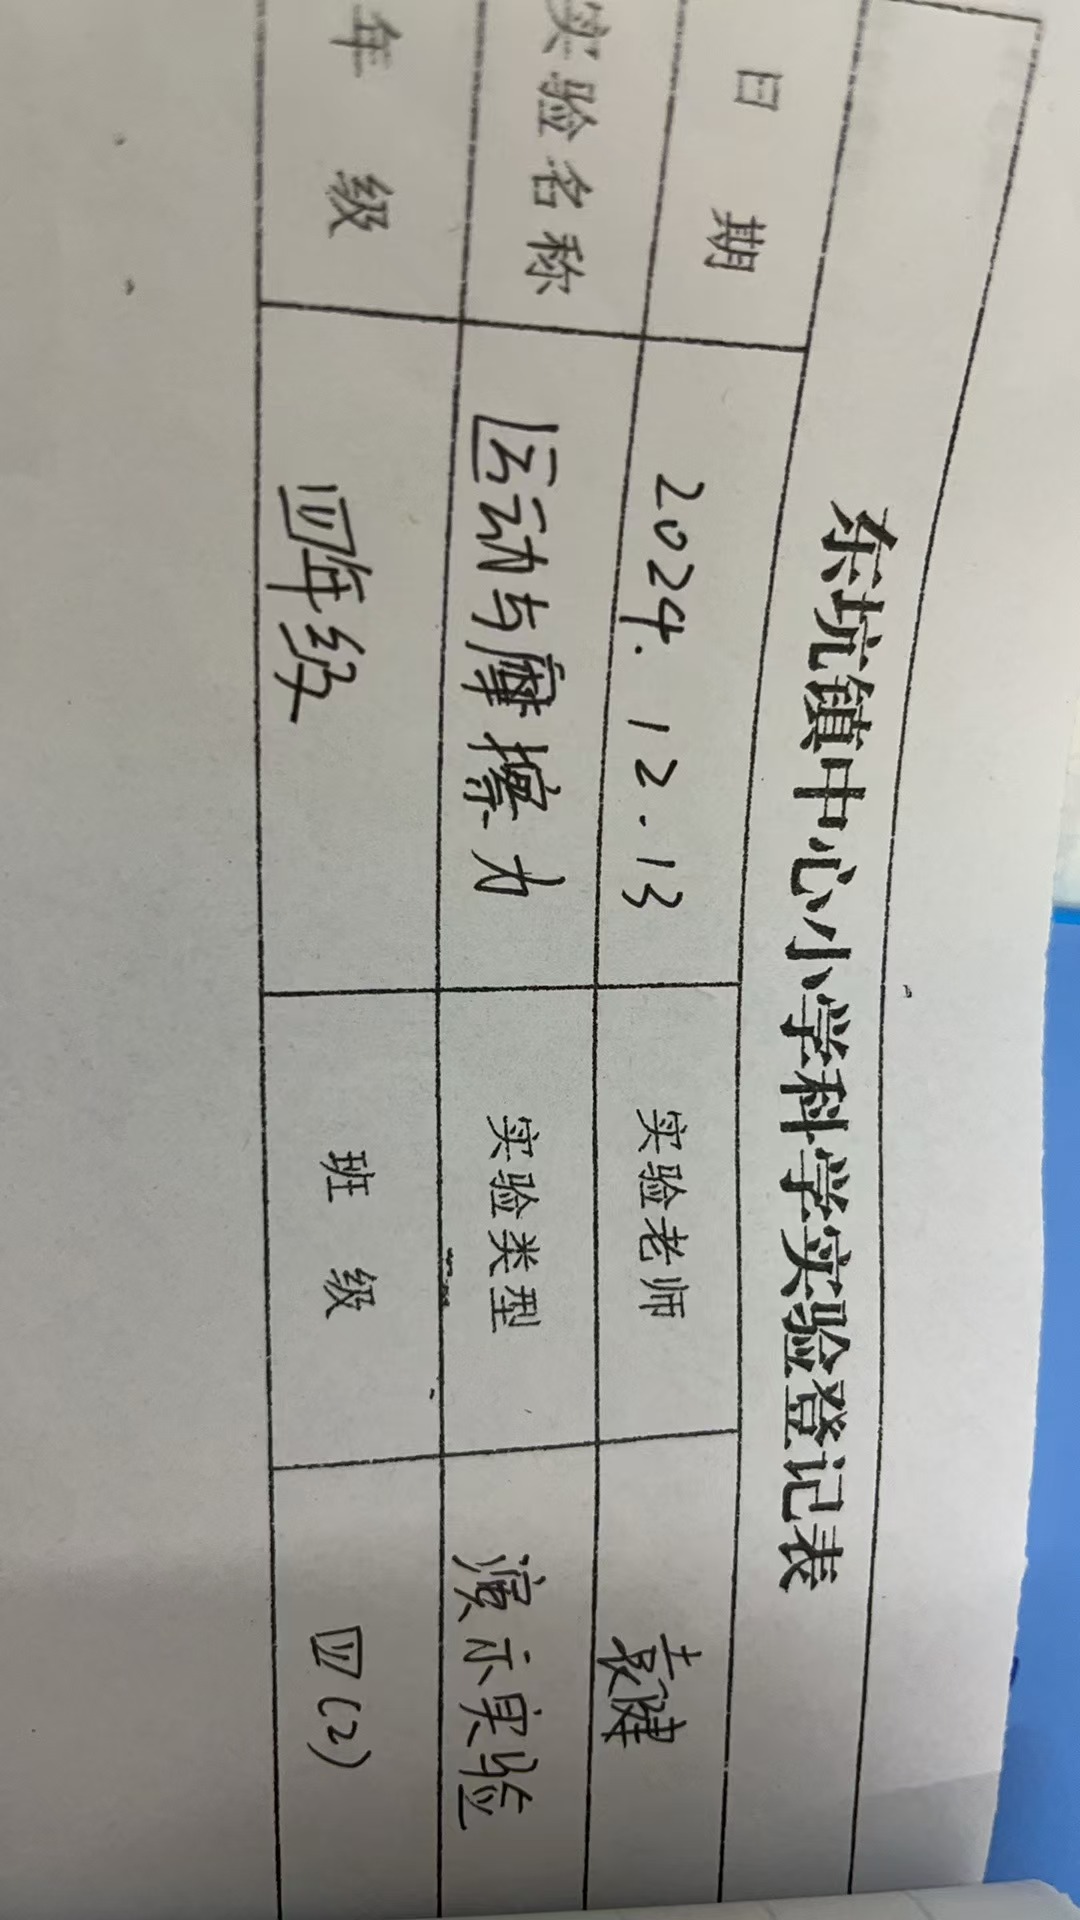 东坑镇中心小学科学实验登记表
日期 2024.12.13 实验老师 袁健
实验名称 运动与摩擦力 实验类型 演示实验
年级 四年级 班级 四(2)